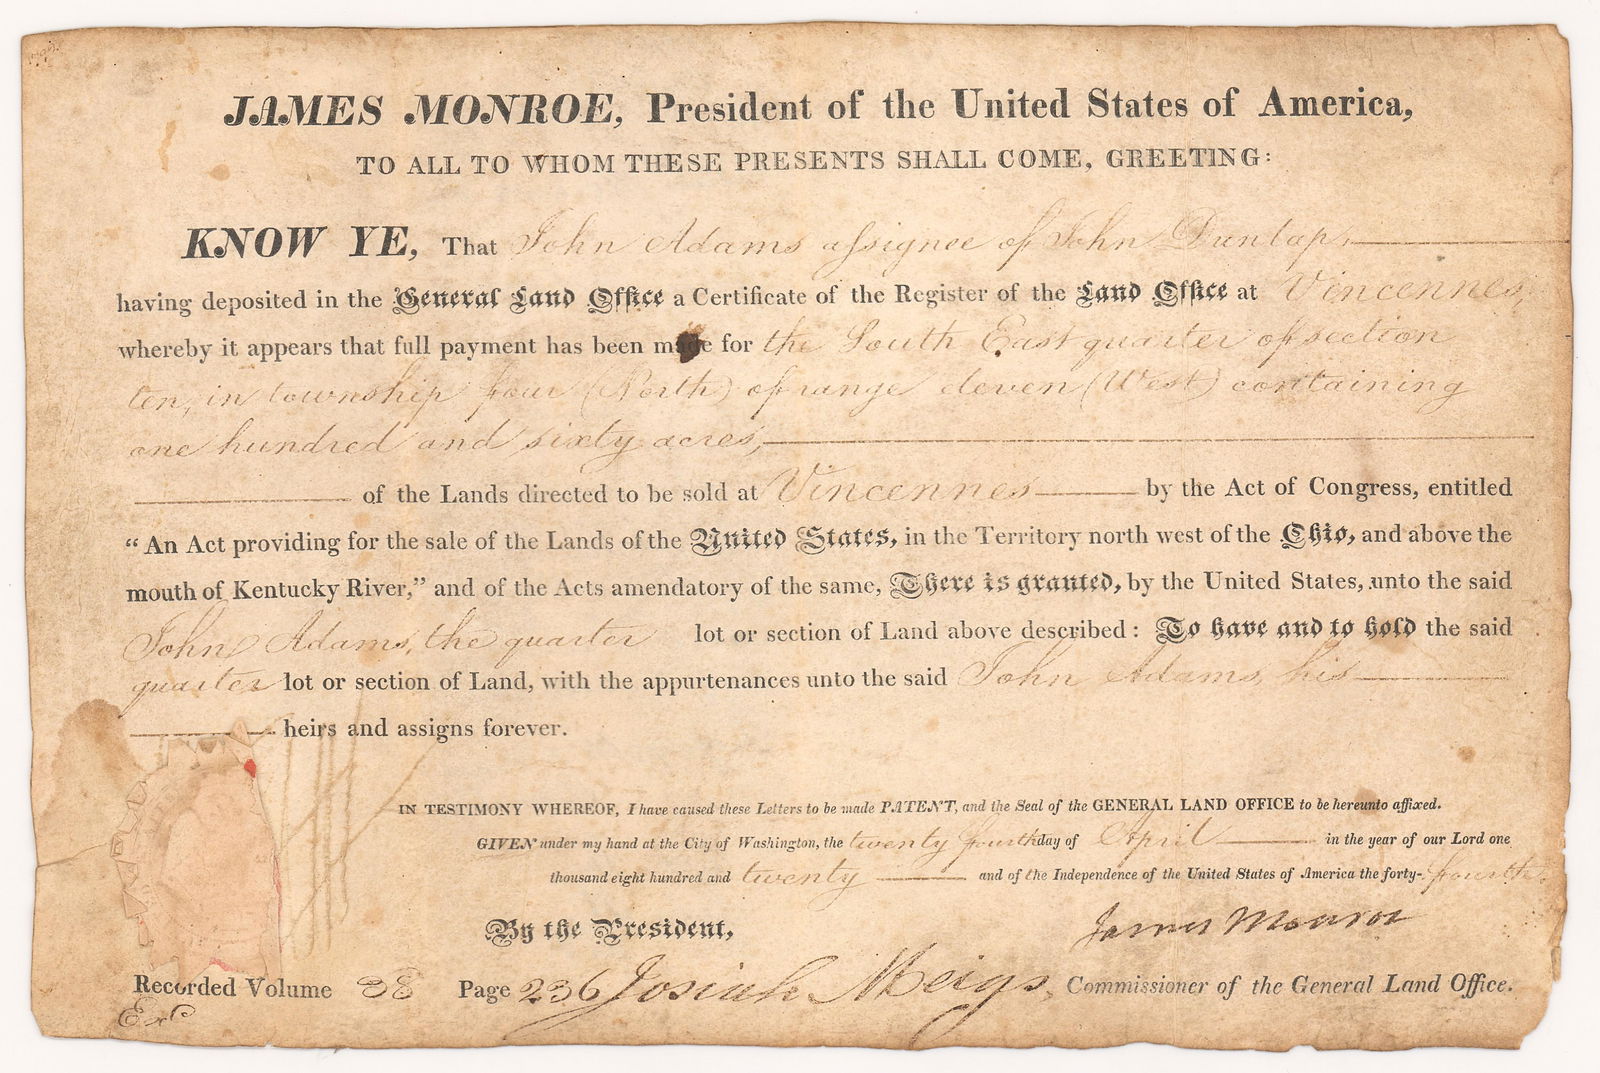 JAMES MONROE, President of the United States of America,
TO ALL TO WHOM THESE PRESENTS SHALL COME, GREETING:
KNOW YE, That John Adams assignee of John Dunlap,
having deposited in the General Land Office a Certificate of the Register of the Land Office at Vincennes,
whereby it appears that full payment has been made for the South East quarter of section
ten, in township four (North) of range eleven (West) containing
one hundred and sixty acres,
of the Lands directed to be sold at Vincennes by the Act of Congress, entitled
“An Act providing for the sale of the Lands of the United States, in the Territory north west of the Ohio, and above the
mouth of Kentucky River,” and of the Acts amendatory of the same, There is granted, by the United States, unto the said
John Adams, the quarter lot or section of Land above described: To have and to hold the said
quarter lot or section of Land, with the appurtenances unto the said John Adams, his
heirs and assigns forever.
IN TESTIMONY WHEREOF, I have caused these Letters to be made PATENT, and the Seal of the GENERAL LAND OFFICE to be hereunto affixed.
GIVEN under my hand at the City of Washington, the twenty fourth day of April in the year of our Lord one
thousand eight hundred and twenty and of the Independence of the United States of America the forty-fourth.
By the President, James Monroe
Recorded Volume 38 Page 236 Josiah Meigs, Commissioner of the General Land Office.